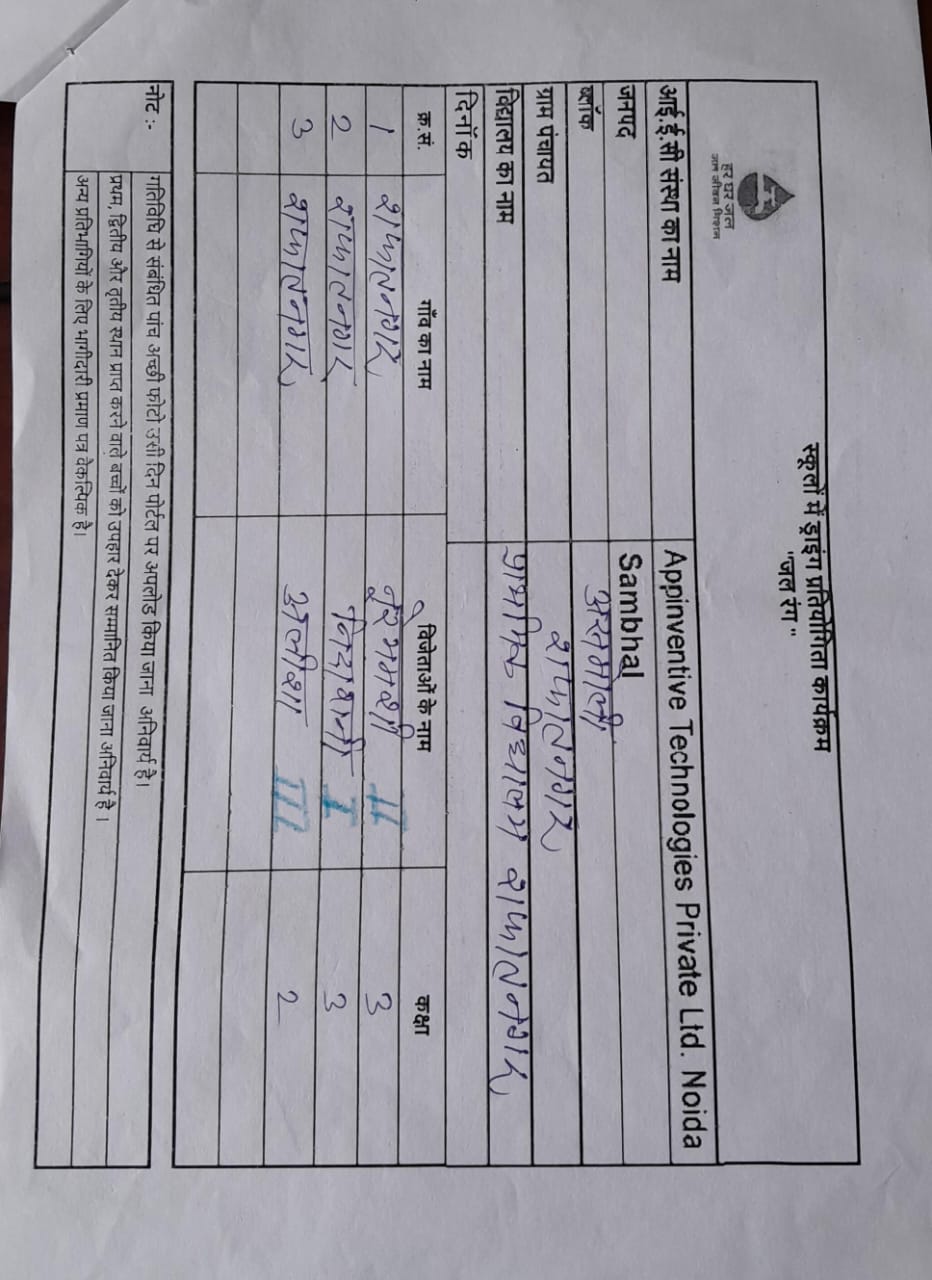 हर घर जल
जल जीवन मिशन
स्कूलों में ड्राइंग प्रतियोगिता कार्यक्रम
"जल रंग"
आई.ई.सी संस्था का नाम Appinventive Technologies Private Ltd. Noida
जनपद Sambhal
ब्लॉक असमोली
ग्राम पंचायत शफातनगर
विद्यालय का नाम विद्यालय शफातनगर
दिनाँक
क्र.सं. गाँव का नाम विजेताओं के नाम कक्षा
1 शफातनगर II 3
2 शफातनगर I 3
3 शफातनगर अलीशा III 2
नोट :- गतिविधि से संबंधित पांच अच्छी फोटो उसी दिन पोर्टल पर अपलोड किया जाना अनिवार्य है।
प्रथम, द्वितीय और तृतीय स्थान प्राप्त करने वाले बच्चों को उपहार देकर सम्मानित किया जाना अनिवार्य है ।
अन्य प्रतिभागियों के लिए भागीदारी प्रमाण पत्र वैकल्पिक है।